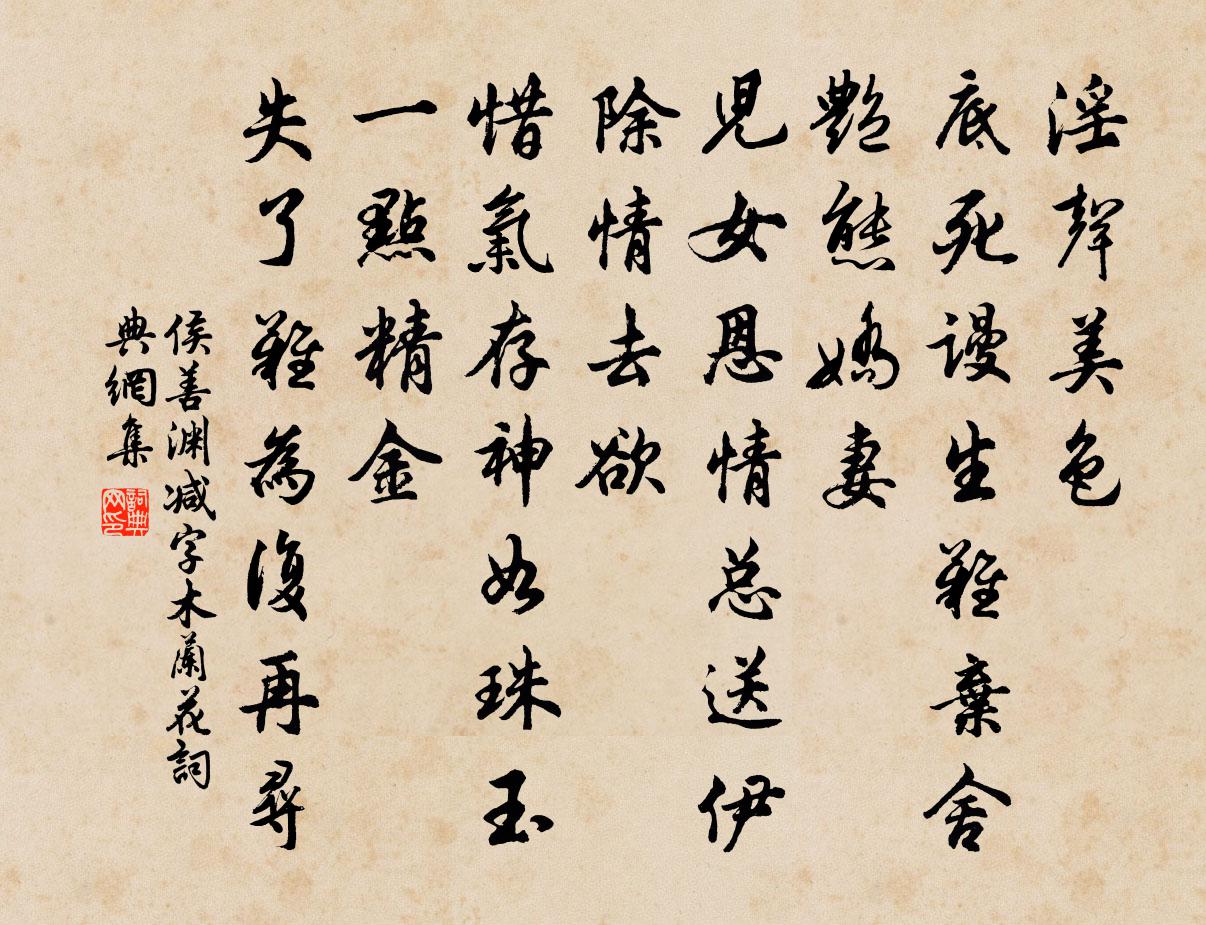 淫聲美色
底死謾生難棄舍
艷態嬌妻
兒女恩情总送伊
除情去欲
惜氣存神如珠玉
一點精金
失了難為復再尋
侯善渊减字木蘭花詞
典網集
詞典网印